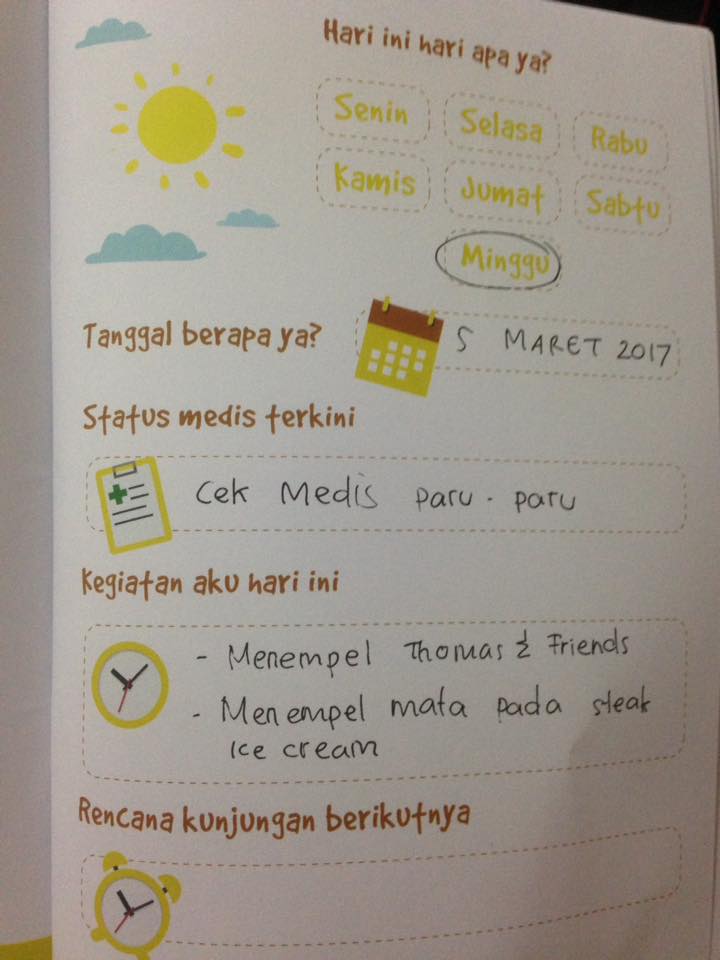 Hari ini hari apa ya?
Senin Selasa Rabu
Kamis Jumat Sabtu
Minggu
Tanggal berapa ya? 5 MARET 2017
Status medis terkini
Cek Medis paru - paru
Kegiatan aku hari ini
- Menempel Thomas & Friends
- Menempel mata pada steak
Ice cream
Rencana kunjungan berikutnya